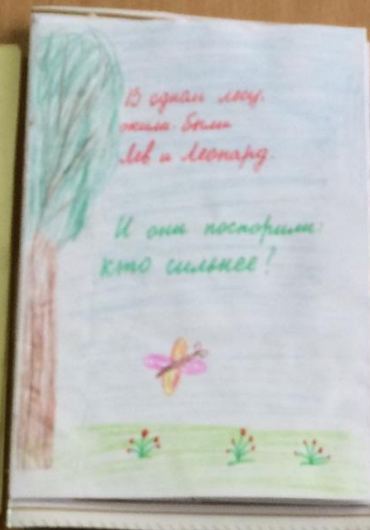 В одном лесу,
жили были
Лев и Леопард.
И они поспорили:
кто сильнее?